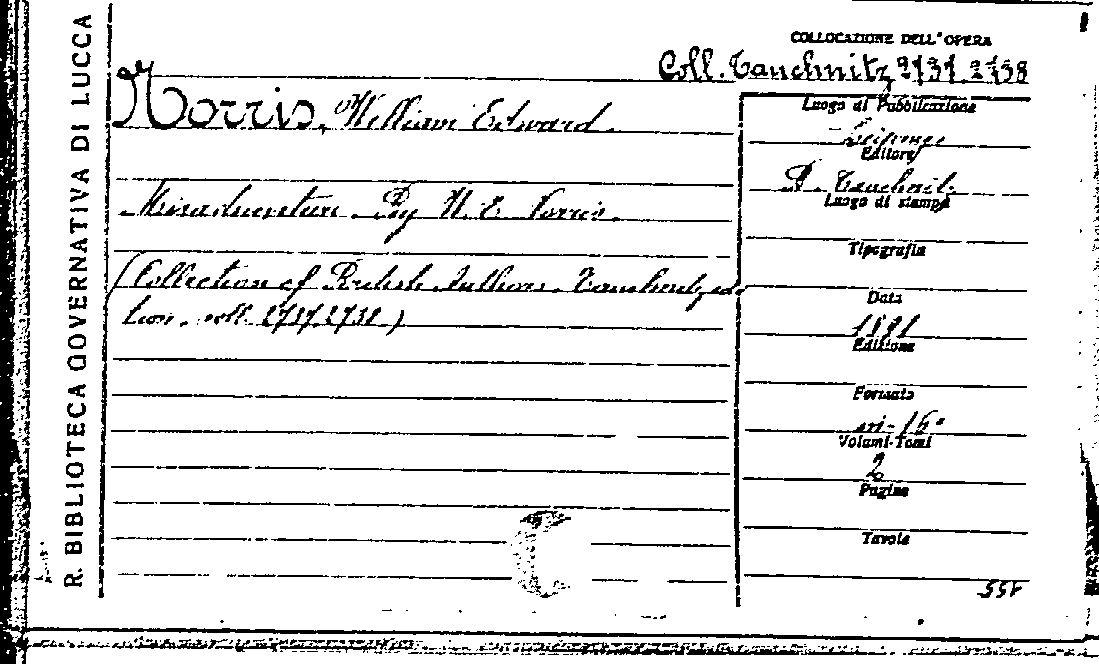 R. BIBLIOTECA GOVERNATIVA DI LUCCA
COLLOCAZIONE DELL'OPERA
Coll. Tauchnitz 2737-2738
Norris, William Edward.
Misadventure. By W. E. Norris.
(Collection of British Authors. Tauchnitz edi-
tion. coll. 2737.2738)
Luogo di Pubblicazione
Editore
B. Tauchnitz
Luogo di stampa
Tipografia
Data
1891
Edizione
Formato
in-16°
Volumi-Tomi
2
Pagine
Tavole